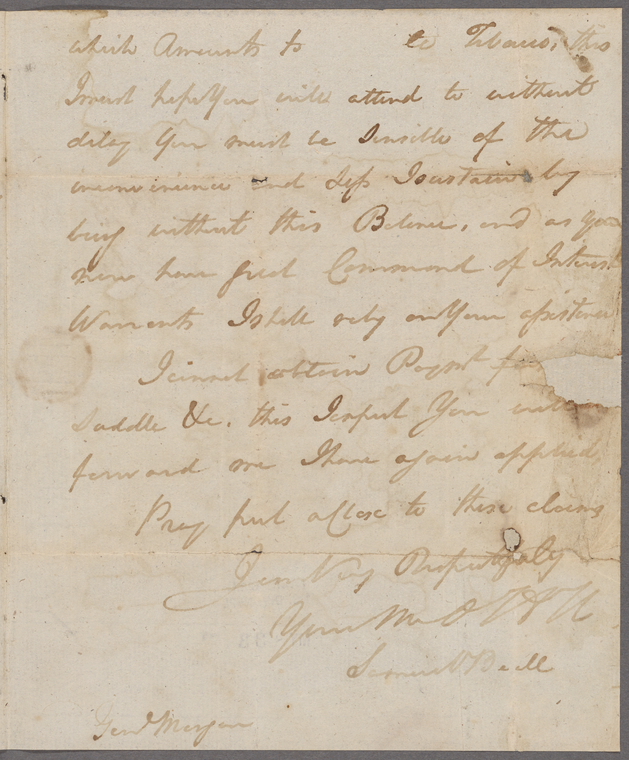 which Amounts to      lb Tobacco, this
I must hope You will attend to without
delay You must be Sensible of the
inconvenience and Loss I sustain by
being without this Balance, and as you
now have great Command of Interest
Warrants I shall rely on Your assistance
I cannot obtain Paymt for
Saddle &c. this I expect You will
forward me I have again applied,
Pray put a Close to these claims
I am Very Respectfully
Your Mo O
Samuel Beall
Genl Morgan